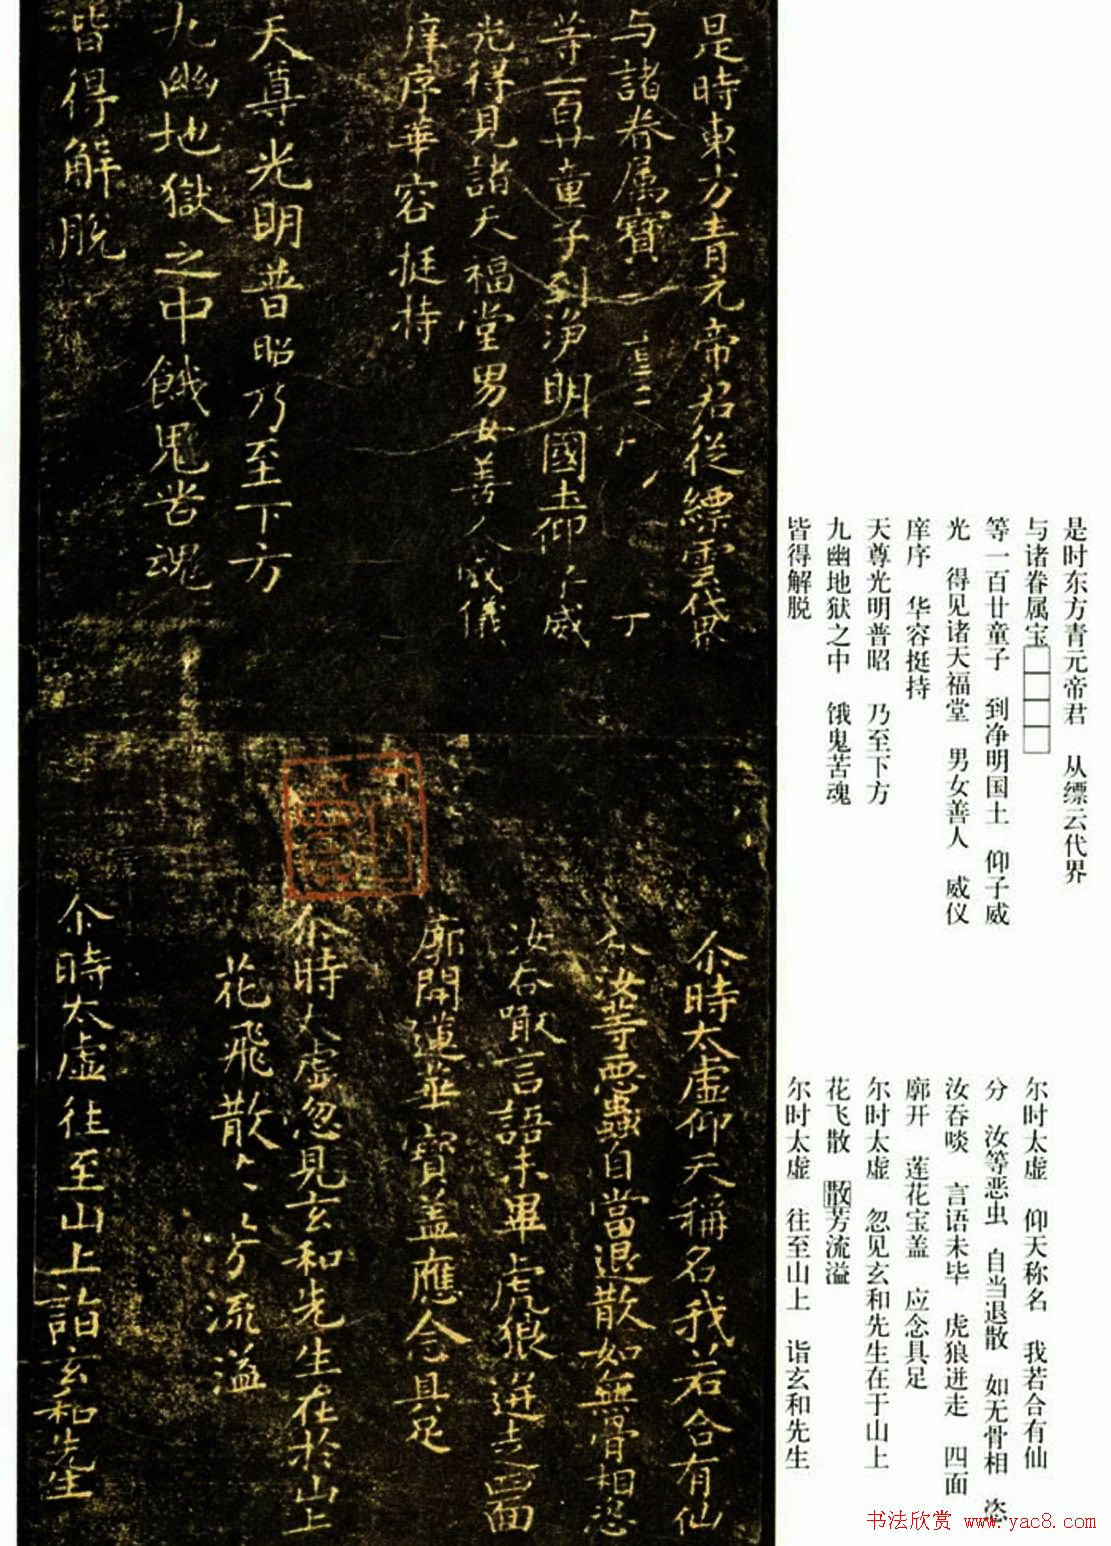 是時東方青元帝君從縹雲代界
与諸眷属寶
等一百廿童子到浄明國土仰子威
光得見諸天福堂男女善人威儀
庠序華容挺持
天尊光明普昭乃至下方
九幽地獄之中餓鬼苦魂
皆得解脱
尒時太虚仰天稱名我若合有仙
分汝等惡蟲自當退散如無骨相恣
汝吞噉言語未畢虎狼迸走四面
廓開蓮花寶盖應念具足
尒時太虚忽見玄和先生在於山上
花飛散〻芳流溢
尒時太虚往至山上詣玄和先生
是时东方青元帝君 从缥云代界
与诸眷属宝□□□□
等一百廿童子 到净明国土 仰子威
光 得见诸天福堂 男女善人 威仪
庠序 华容挺持
天尊光明普昭 乃至下方
九幽地狱之中 饿鬼苦魂
皆得解脱
尔时太虚 仰天称名 我若合有仙
分 汝等恶虫 自当退散 如无骨相 恣
汝吞啖 言语未毕 虎狼迸走 四面
廓开 莲花宝盖 应念具足
尔时太虚 忽见玄和先生在于山上
花飞散 散芳流溢
尔时太虚 往至山上 诣玄和先生
书法欣赏 www.yac8.com